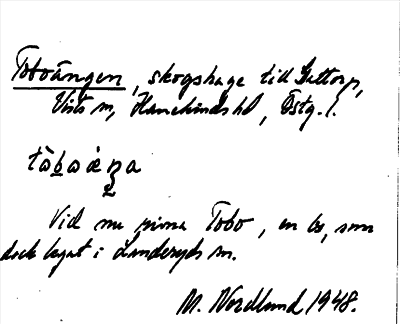 Toboängen, skogshage till Gettorp,
Vists sn, Hanekinds hd, Östg. l.
tòboèŋa
Vid nu Tobo, en by, som
dock legat i Landeryds sn.
M. Nordlund 1948.